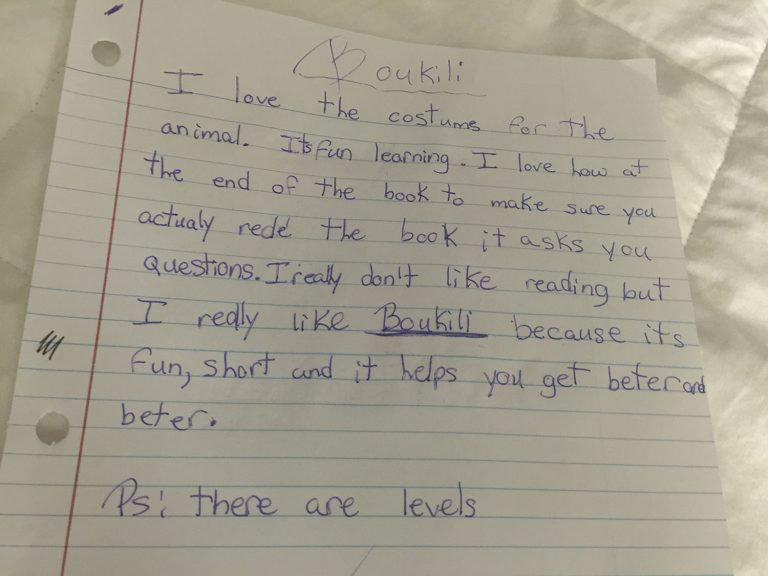 Boukili
I love the costums for the
animal. Its fun learning. I love how at
the end of the book to make sure you
actualy rede the book it asks you
questions. I really don't like reading but
I redly like Boukili because its
fun, short and it helps you get beter and
beter.
Ps: there are levels